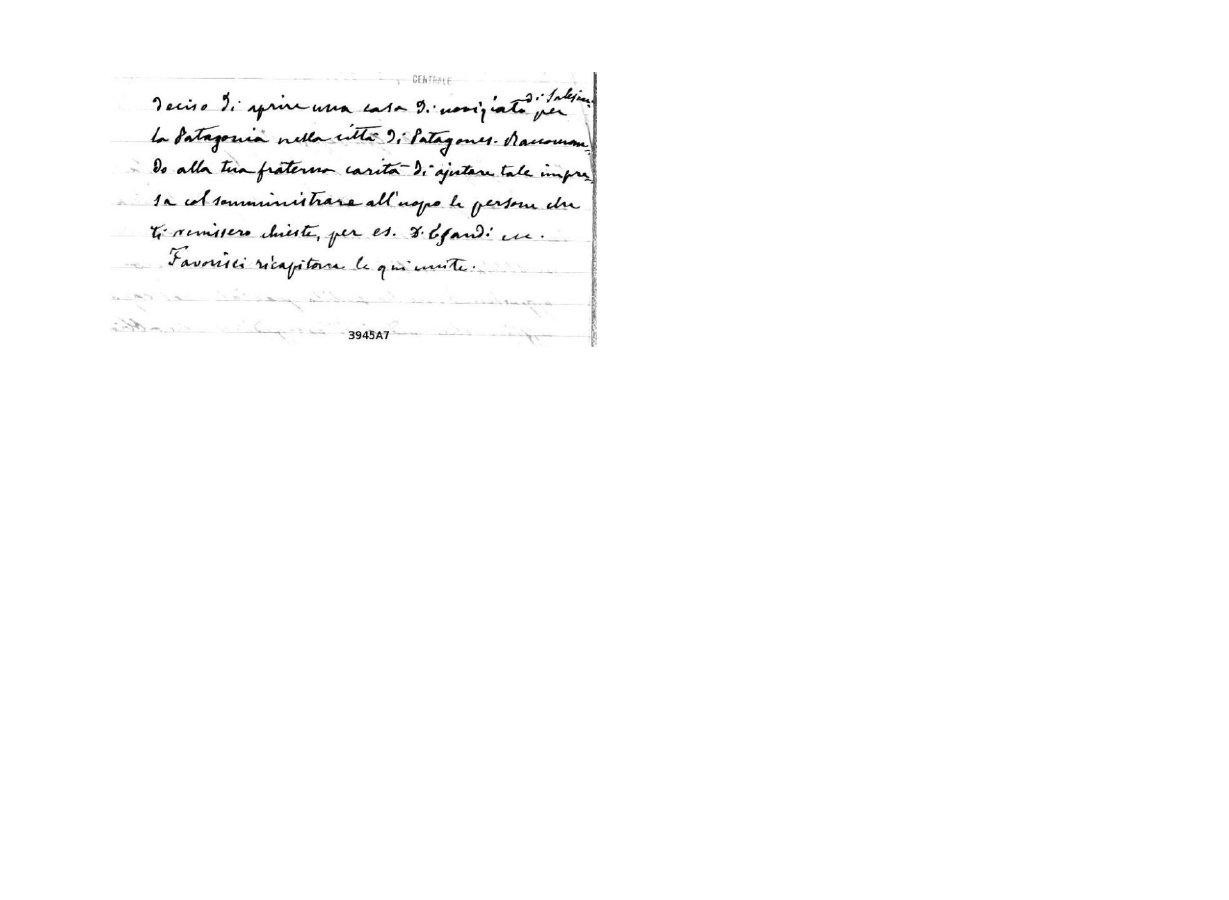 CENTRALE
deciso di aprire una casa di noviziato di Salesiani per
la Patagonia nella città di Patagones. Raccoman-
do alla tua fraterna carità di ajutare tale impre-
sa col somministrare all'uopo le persone che
ti venissero chieste, per es. D.
Favorisci ricapitare le qui unite.
3945A7